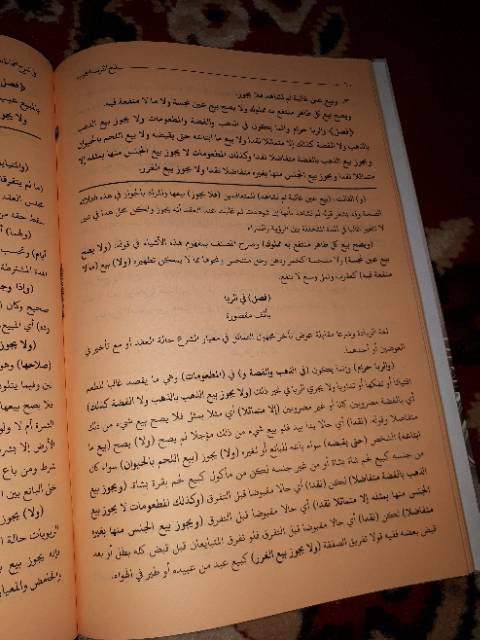 ٣. وبيع عين غائبة لم تشاهد فلا يجوز.
ويصح بيع كل طاهر منتفع به مملوك ولا يصح بيع عين نجسة ولا ما لا منفعة فيه.
(فصل) والربا حرام وإنما يكون في الذهب والفضة والمطعومات ولا يجوز بيع الذهب
بالذهب ولا الفضة كذلك إلا متماثلا نقدا ولا بيع ما ابتاعه حتى يقبضه ولا بيع اللحم بالحيوان
ويجوز بيع الذهب بالفضة متفاضلا نقدا وكذلك المطعومات لا يجوز بيع الجنس منها بمثله إلا
متماثلا نقدا ويجوز بيع الجنس منها بغيره متفاضلا نقدا ولا يجوز بيع الغرر.
(و) الثالث: (بيع عين غائبة لم تشاهد) للمتعاقدين (فلا يجوز) بيعها والمراد بالجواز في هذه الثلاثة
الصحة وقد يشعر قوله لم تشاهد بأنها إن شوهدت ثم غابت عند العقد أنه يجوز ولكن محل هذا في عين
لا تتغير غالبا في المدة المتخللة بين الرؤية والشراء
(ويصح بيع كل طاهر منتفع به مملوك) وصرح المصنف بمفهوم هذه الأشياء في قوله: (ولا يصح
بيع عين نجسة) ولا متنجسة كخمر ودهن وخل متنجس ونحوها مما لا يمكن تطهيره (ولا) بيع (مالا
منفعة فيه) كعقرب ونمل وسبع لا ينفع.
(فصل) في الربا
بألف مقصورة
لغة الزيادة وشرعا مقابلة عوض بآخر مجهول التماثل في معيار الشرع حالة العقد أو مع تأخير في
العوضين أو أحدهما.
(والربا حرام) وإنما يكون (في الذهب والفضة و) في (المطعومات) وهي ما يقصد غالبا للطعم
اقتياتا أو تفكها أو تداويا ولا يجري الربا في غير ذلك (ولا يجوز بيع الذهب بالذهب ولا الفضة كذلك)
أي بالفضة مضروبين كانا أو غير مضروبين (إلا متماثلا) أي مثلا بمثل فلا يصح بيع شيء من ذلك
متفاضلا وقوله: (نقدا) أي حالا يدا بيد فلو بيع شيء من ذلك مؤجلا لم يصح (ولا) يصح (بيع ما
ابتاعه) الشخص (حتى يقبضه) سواء باعه للبائع أو لغيره (ولا) يجوز (بيع اللحم بالحيوان) سواء كان
من جنسه كبيع لحم شاة بشاة أو من غير جنسه لكن من مأكول كبيع لحم بقرة بشاة (ويجوز بيع
الذهب بالفضة متفاضلا) لكن (نقدا) أي حالا مقبوضا قبل التفرق (وكذلك المطعومات لا يجوز بيع
الجنس منها بمثله إلا متماثلا نقدا) أي حالا مقبوضا قبل التفرق (ويجوز بيع الجنس منها بغيره
متفاضلا) لكن (نقدا) أي حالا مقبوضا قبل التفرق فلو تفرق المتبايعان قبل قبض كله بطل أو بعد
قبض بعضه ففيه قولا تفريق الصفقة (ولا يجوز بيع الغرر) كبيع عبد من عبيده أو طير في الهواء.